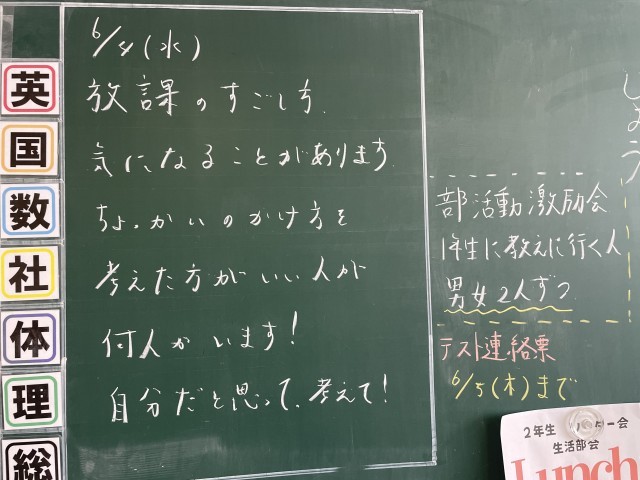 英
国
数
社
体
理
総
6/4(水)
放課のすごし方.
気になることがあります
ちょっかいのかけ方を
考えた方がいい人が
何人かいます!
自分だと思って、考えて!
しょう
部活動激励会
1年生に教えに行く人
男女2人ずつ
テスト連絡票
6/5(木)まで
2年生
ー会
生活部会
Lunch